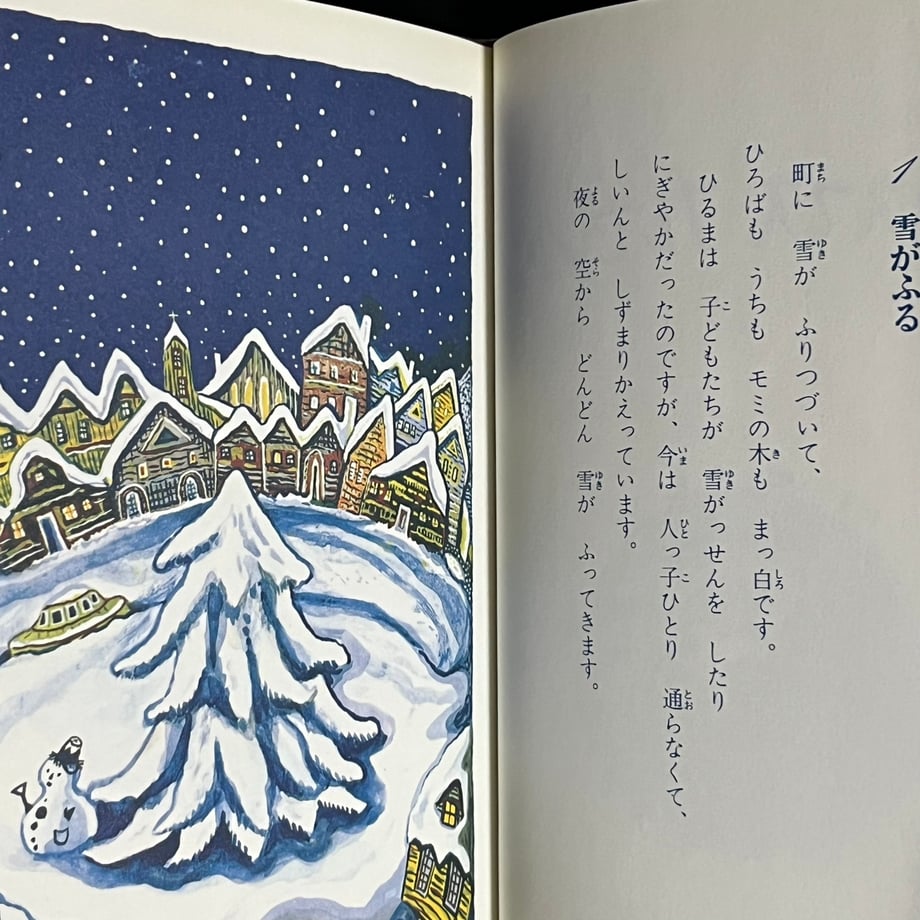 1 雪がふる
町に 雪が ふりつづいて、
ひろばも うちも モミの木も まっ白です。
ひるまは 子どもたちが 雪がっせんを したり
にぎやかだったのですが、今は 人っ子ひとり 通らなくて、
しいんと しずまりかえっています。
夜の 空から どんどん 雪が ふってきます。